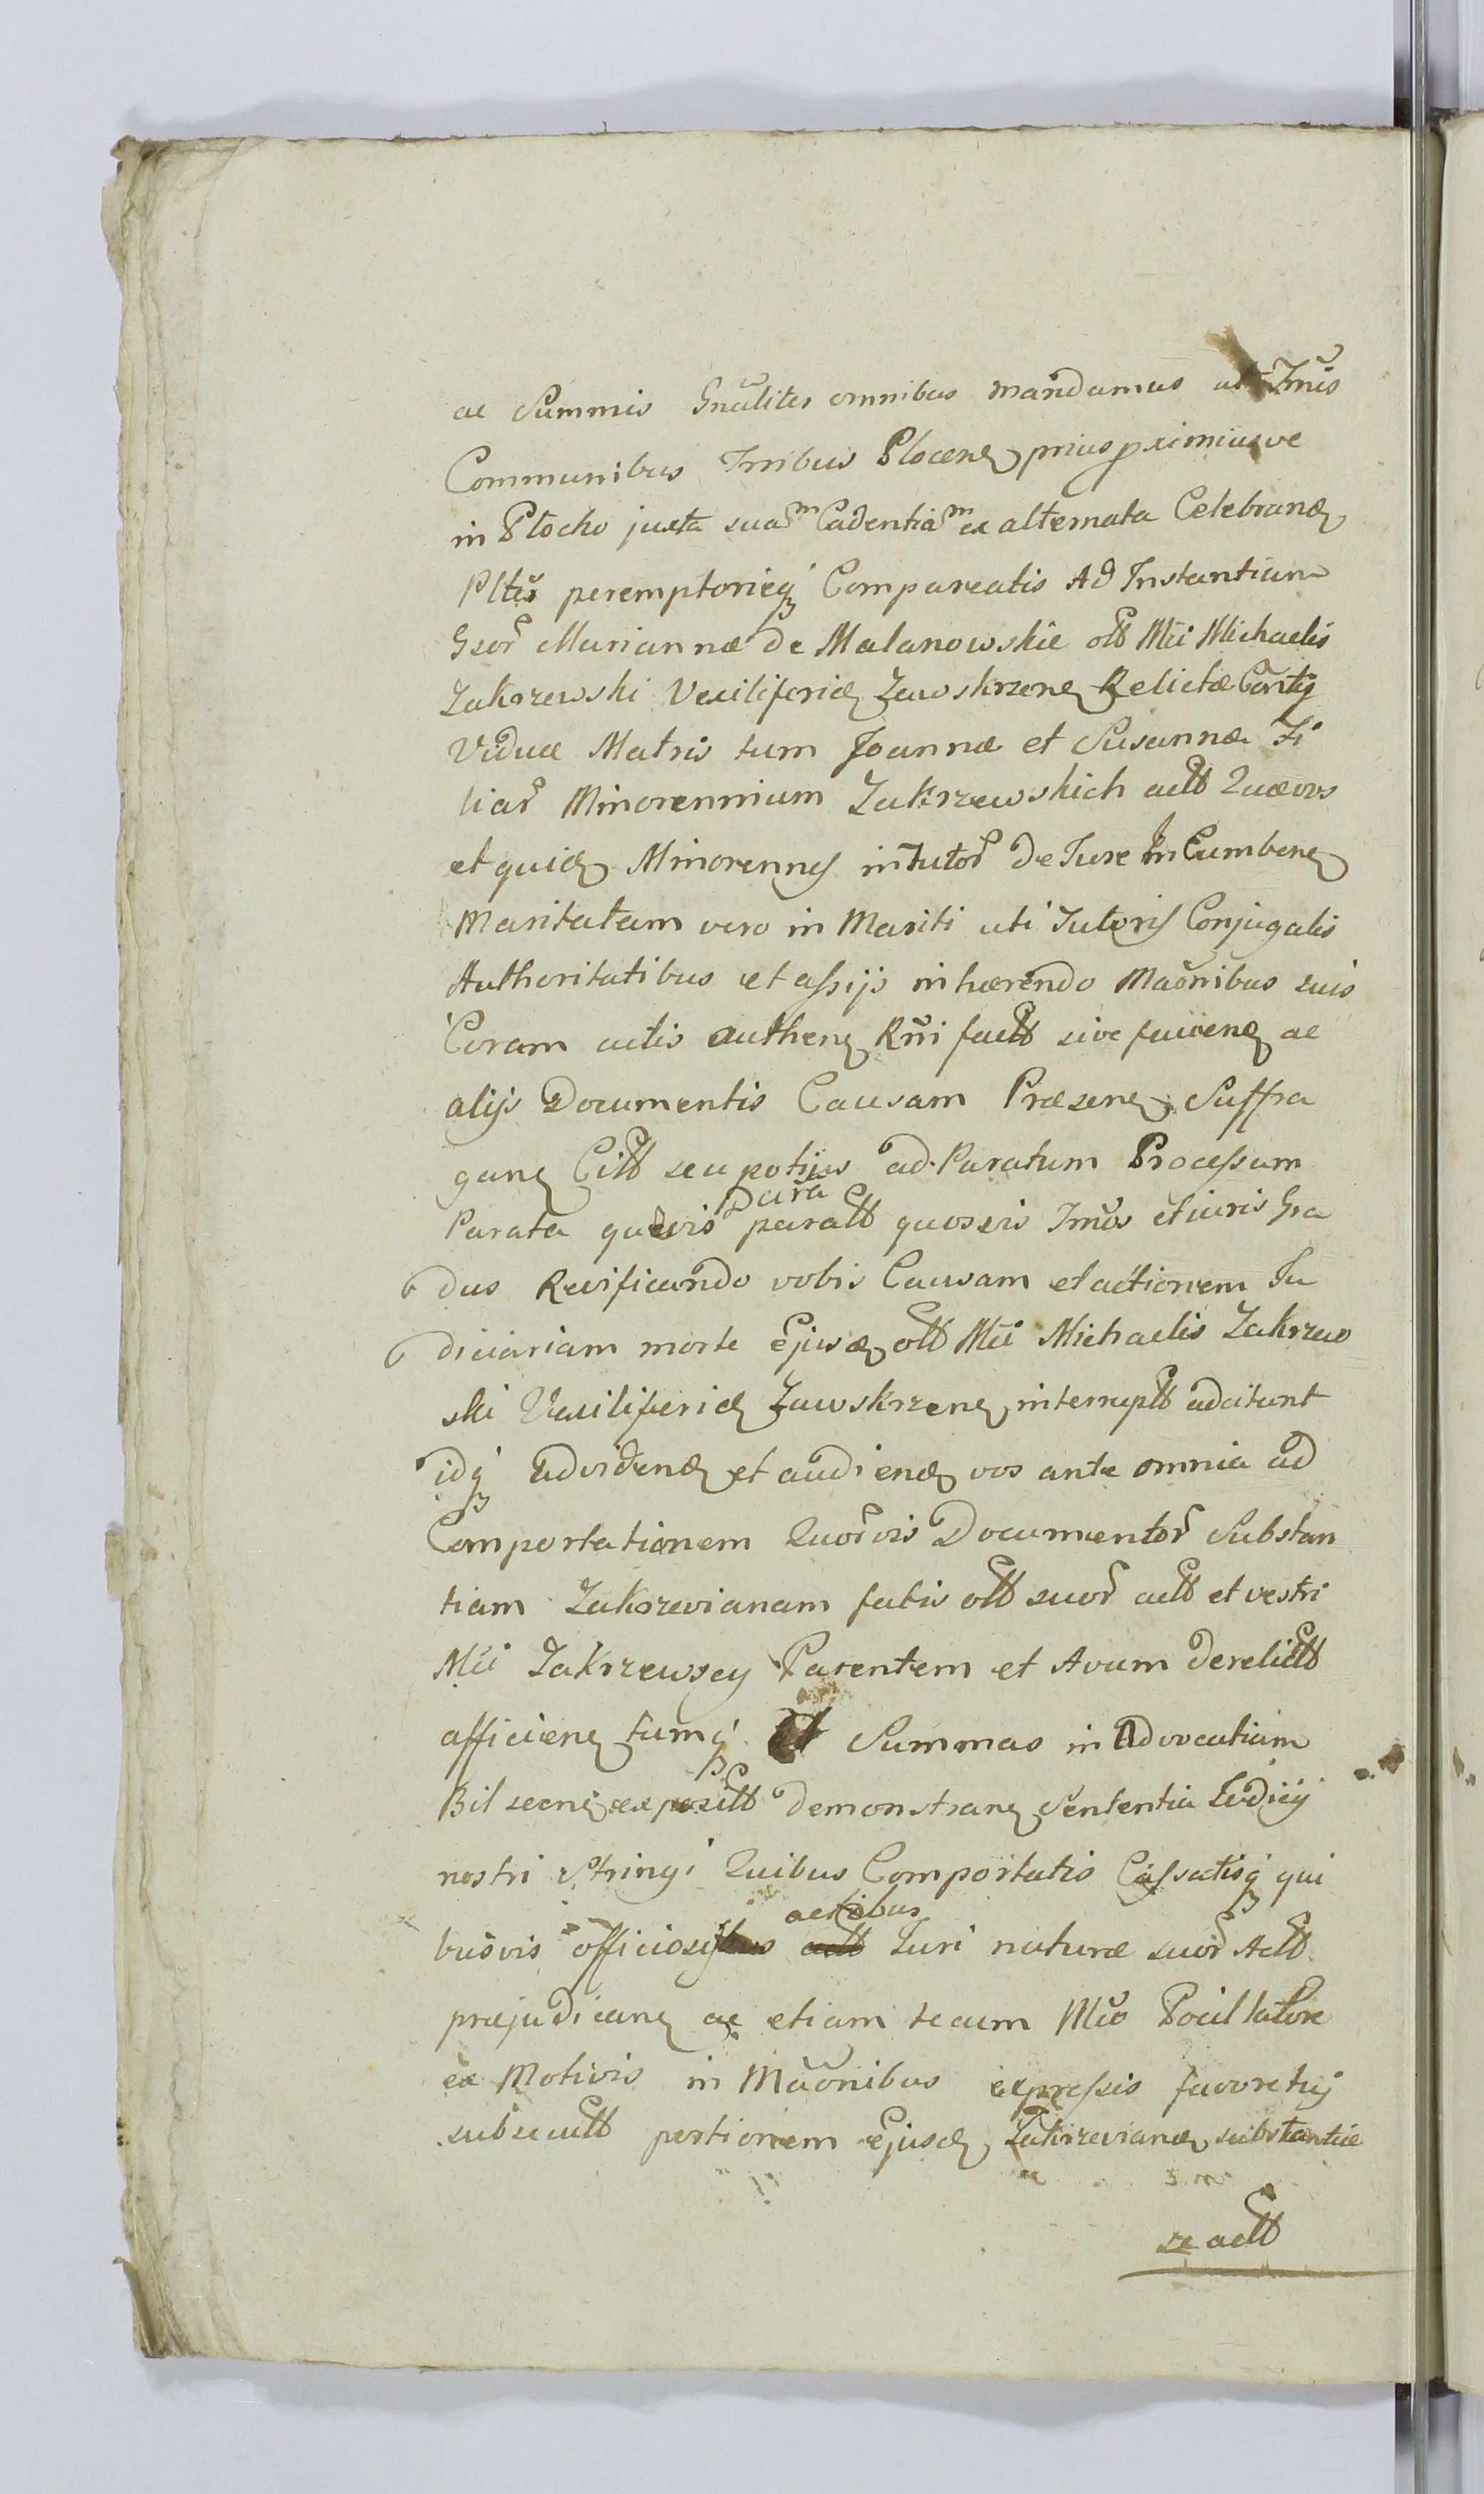 ac Summis Gnãliter omnibus mandamus ut Tmis
Communibus Trribus Plocen prius proximiusve
in Płocko juxta suam Cadentiam ex alternata Celebrand
Pltĕr peremptorieq Compareatis Ad Instantiam
Gsor Mariannæ de Malanowskie olt Mci Michaelis
Zakrzewski Vexiliferid Zawskrzen Relictæ Contĝ
Viduæ Matris tum Joannæ et Susannæ Fi
liar Minorennium Zakrzewskich actt Quævos
et quid Minorennes in Tutor de Jure In Cumben
Maritatam vero in Mariti uti Tutoris Conjugalis
Authoritatibus et assijs inhærendo Maõnibus suis
Coram actis authen Rñi factt sive faciend ac
alijs Documentis Causam Præsen Suffra
gan Citt seu potius ad Paratum Processum
Parata quævis para paratt quosvis Tmos et iuris Gra
dus Reificando vobis Causam et actionem Ju
diciariam morte Ejusd olt Mci Michaelis Zakrzew
ski Vexiliferid Zawskrzen interruptt adcitant
idq Advidend et audiend vos ante omnia ad
Comportationem Quorvis Documentor Substan
tiam Zakrzevianam fatis olt suor actt et vestri
Mci Zakrzewscy Parentem et Avum derelictt
afficien tumq Et Summas in Advocatiam
Bilscen expositt demonstran Sententia Judicij
nostri Stringi Quibus Comportatis Cassatisq qui
busvis officiosis actibus Juri naturæ suor Actt
præjudican ac etiam secum Mco Pocillatore
ex Motivis in Maõnibus expressis favore tuj
subsecutt portionem Ejusd Zakrzevianæ substantiæ
se actt